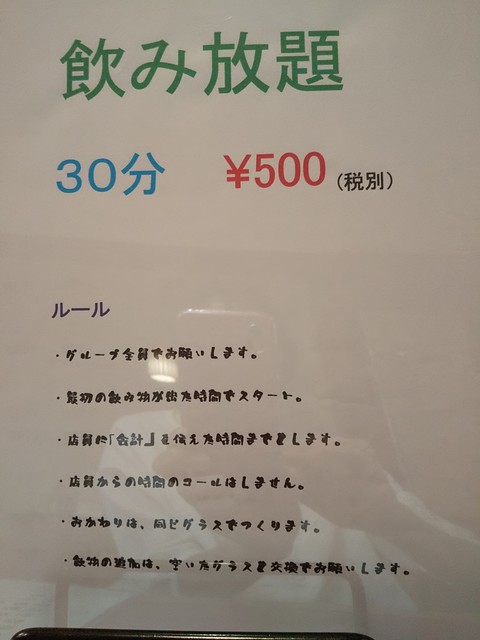 飲み放題
30分 ¥500 (税別)
ルール
・グループ全員でお願いします。
・最初の飲み物が出た時間でスタート。
・店員に「会計」を伝えた時間までとします。
・店員からの時間のコールはしません。
・おかわりは、同じグラスでつくります。
・飲物の追加は、空いたグラスと交換でお願いします。